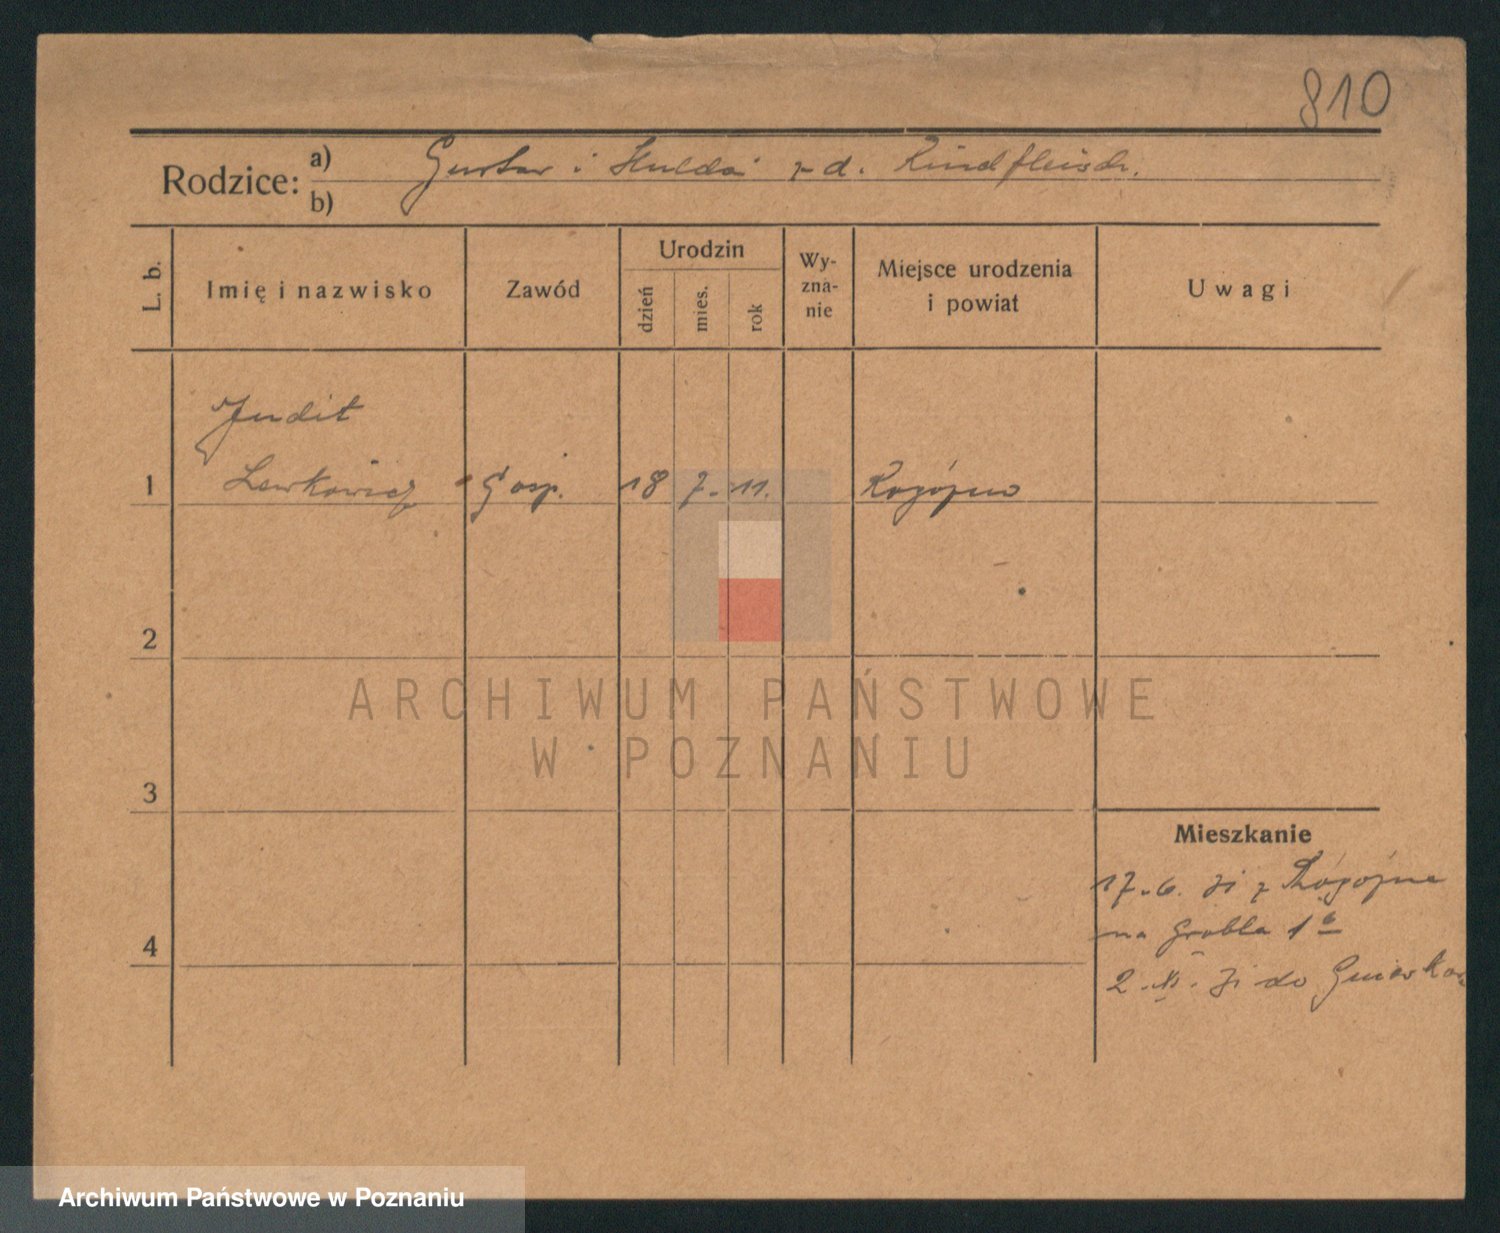 810
Rodzice: a) Gustav i Hulda z d. Rindfleisch.
b)
L. b.
Imię i nazwisko
Zawód
Urodzin
dzień
mies.
rok
Wy-
zna-
nie
Miejsce urodzenia
i powiat
Uwagi
Judit
1 Lewkowicz Gosp. 18 7. 11. Rogóźno
2
3
4
Mieszkanie
17.6. 31 z Rogóźna
na Grobla 1
2. XI. 31 do
ARCHIWUM PAŃSTWOWE
W POZNANIU
Archiwum Państwowe w Poznaniu